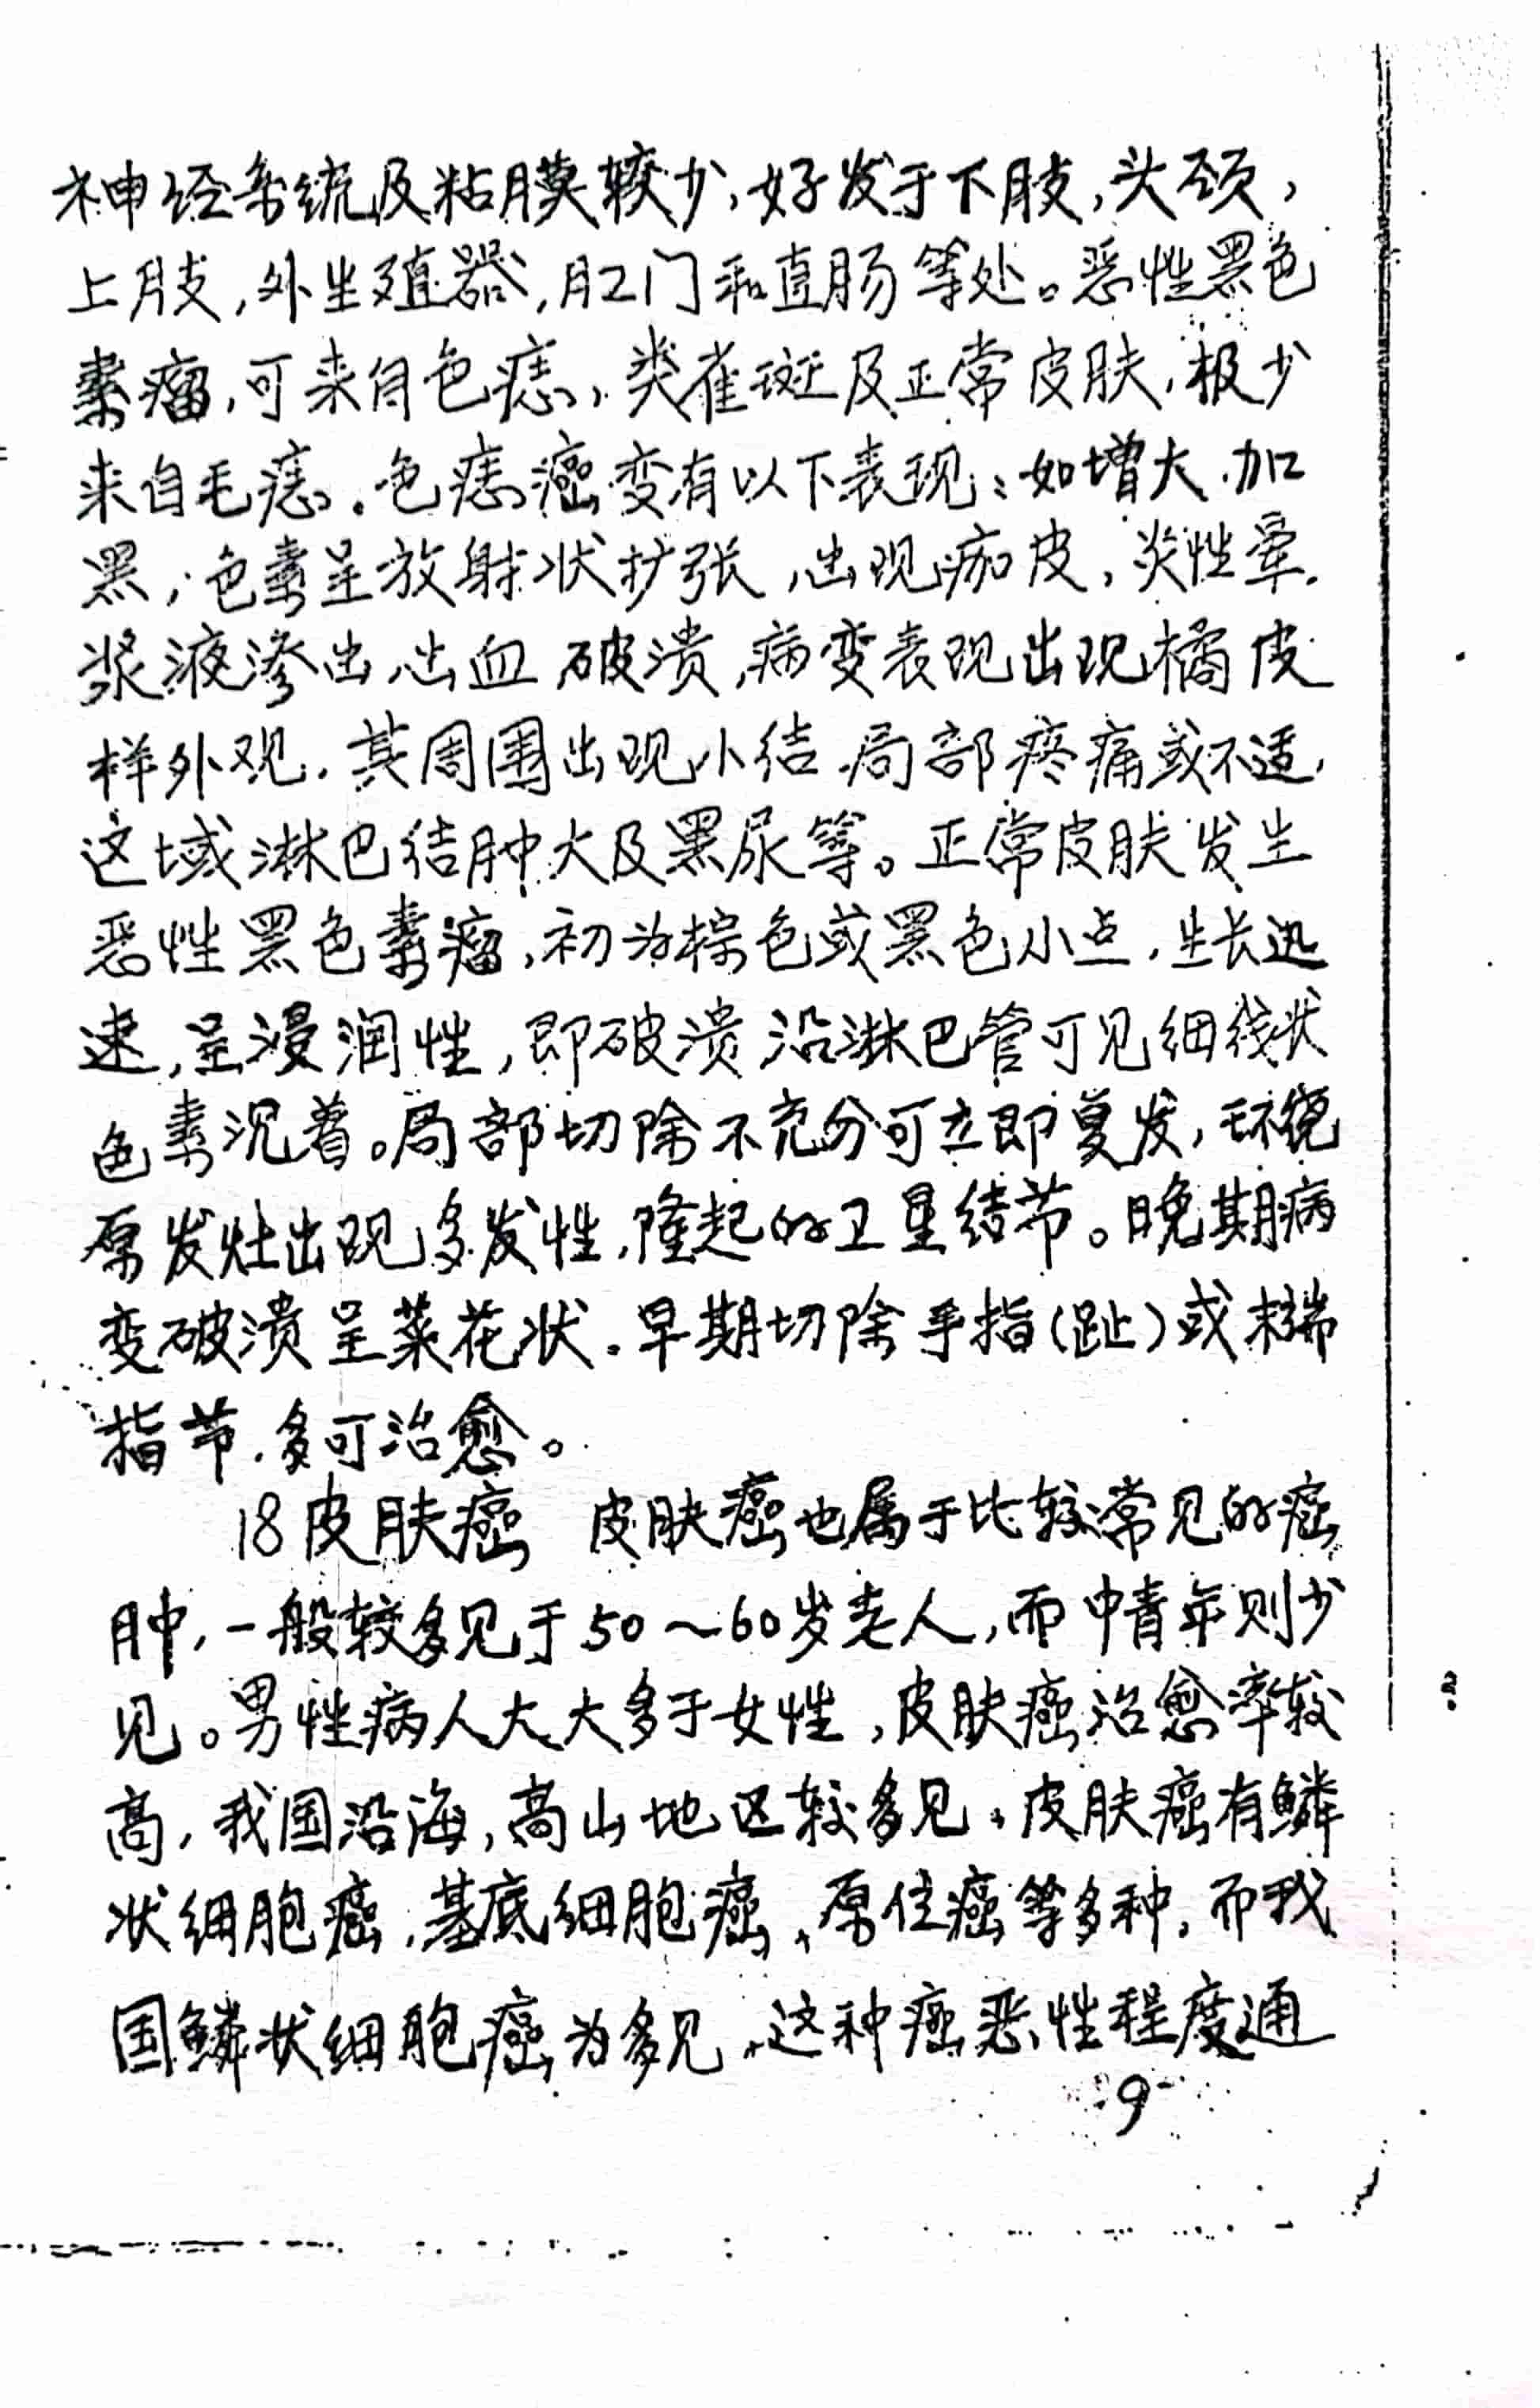 神经系统及粘膜较少,好发于下肢,头颈,
上肢,外生殖器,肛门和直肠等处。恶性黑色
素瘤,可来自色痣,类雀斑及正常皮肤,极少
来自毛痣.色痣癌变有以下表现:如增大,加
黑,色素呈放射状扩张,出现痂皮,炎性晕.
浆液渗出,出血 破溃,病变表现出现橘皮
样外观.其周围出现小结.局部疼痛或不适,
这域淋巴结肿大及黑尿等。正常皮肤发生
恶性黑色素瘤,初为棕色或黑色小点.生长迅
速,呈浸润性,即破溃 沿淋巴管可见细线状
色素沉着。局部切除不充分可立即复发,环绕
原发灶出现多发性,隆起的卫星结节。晚期病
变破溃呈菜花状.早期切除手指(趾)或末端
指节.多可治愈。
18皮肤癌 皮肤癌也属于比较常见的癌
肿,一般较多见于50~60岁老人,而中青年则少
见。男性病人大大多于女性,皮肤癌治愈率较
高,我国沿海,高山地区较多见.皮肤癌有鳞
状细胞癌.基底细胞癌、原位癌等多种,而我
国鳞状细胞癌为多见.这种癌恶性程度通
9